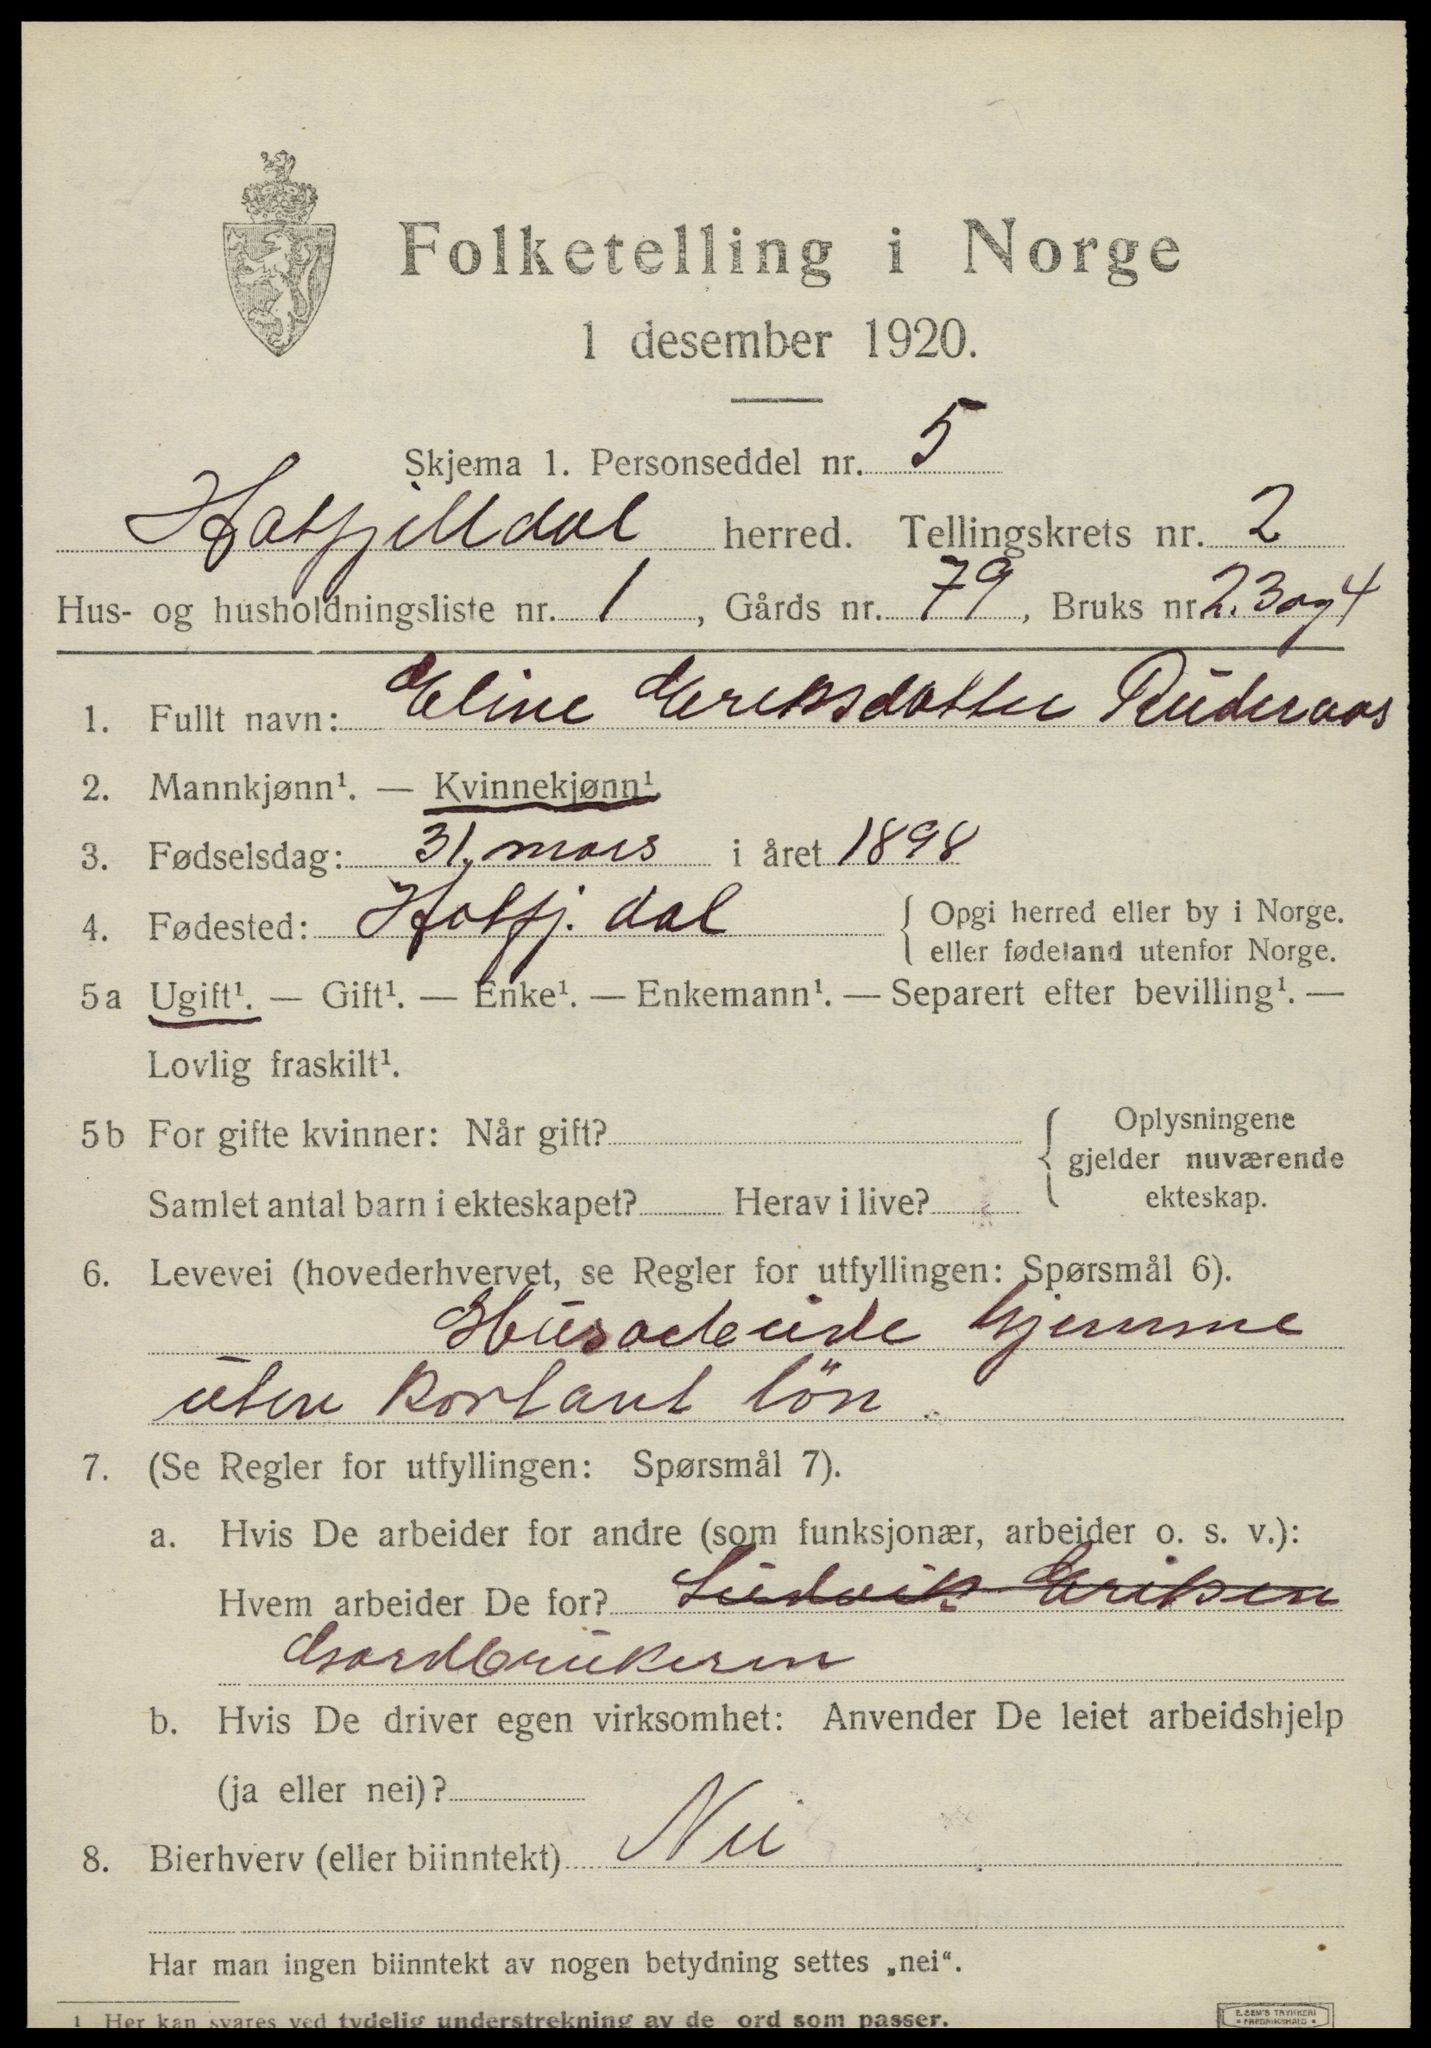 Folketelling i Norge
1 desember 1920.
Skjema 1. Personseddel nr. 5
Hatfjelldal herred. Tellingskrets nr. 2
Hus- og husholdningsliste nr. 1, Gårds nr. 79, Bruks nr. 2.3 og 4
1. Fullt navn: Eline Eriksdatter
2. Mannkjønn¹. — Kvinnekjønn¹.
3. Fødselsdag: 31. mars i året 1898
4. Fødested: Hatfj. dal { Opgi herred eller by i Norge.
eller fødeland utenfor Norge.
5a Ugift¹. — Gift¹. — Enke¹. — Enkemann¹. — Separert efter bevilling¹. —
Lovlig fraskilt¹.
5b For gifte kvinner: Når gift? { Oplysningene
gjelder nuværende
ekteskap.
Samlet antal barn i ekteskapet? Herav i live?
6. Levevei (hovederhvervet, se Regler for utfyllingen: Spørsmål 6).
Husarbeide hjemme
uten kontant lön.
7. (Se Regler for utfyllingen: Spørsmål 7).
a. Hvis De arbeider for andre (som funksjonær, arbeider o. s. v.):
Hvem arbeider De for? Ludvik Eriksen
Gardbrukeren
b. Hvis De driver egen virksomhet: Anvender De leiet arbeidshjelp
(ja eller nei)?
8. Bierhverv (eller biinntekt) Nei
Har man ingen biinntekt av nogen betydning settes „nei“.
¹ Her kan svares ved tydelig understrekning av de ord som passer.
E. SEM'S TRYKKERI
FREDRIKSHALD